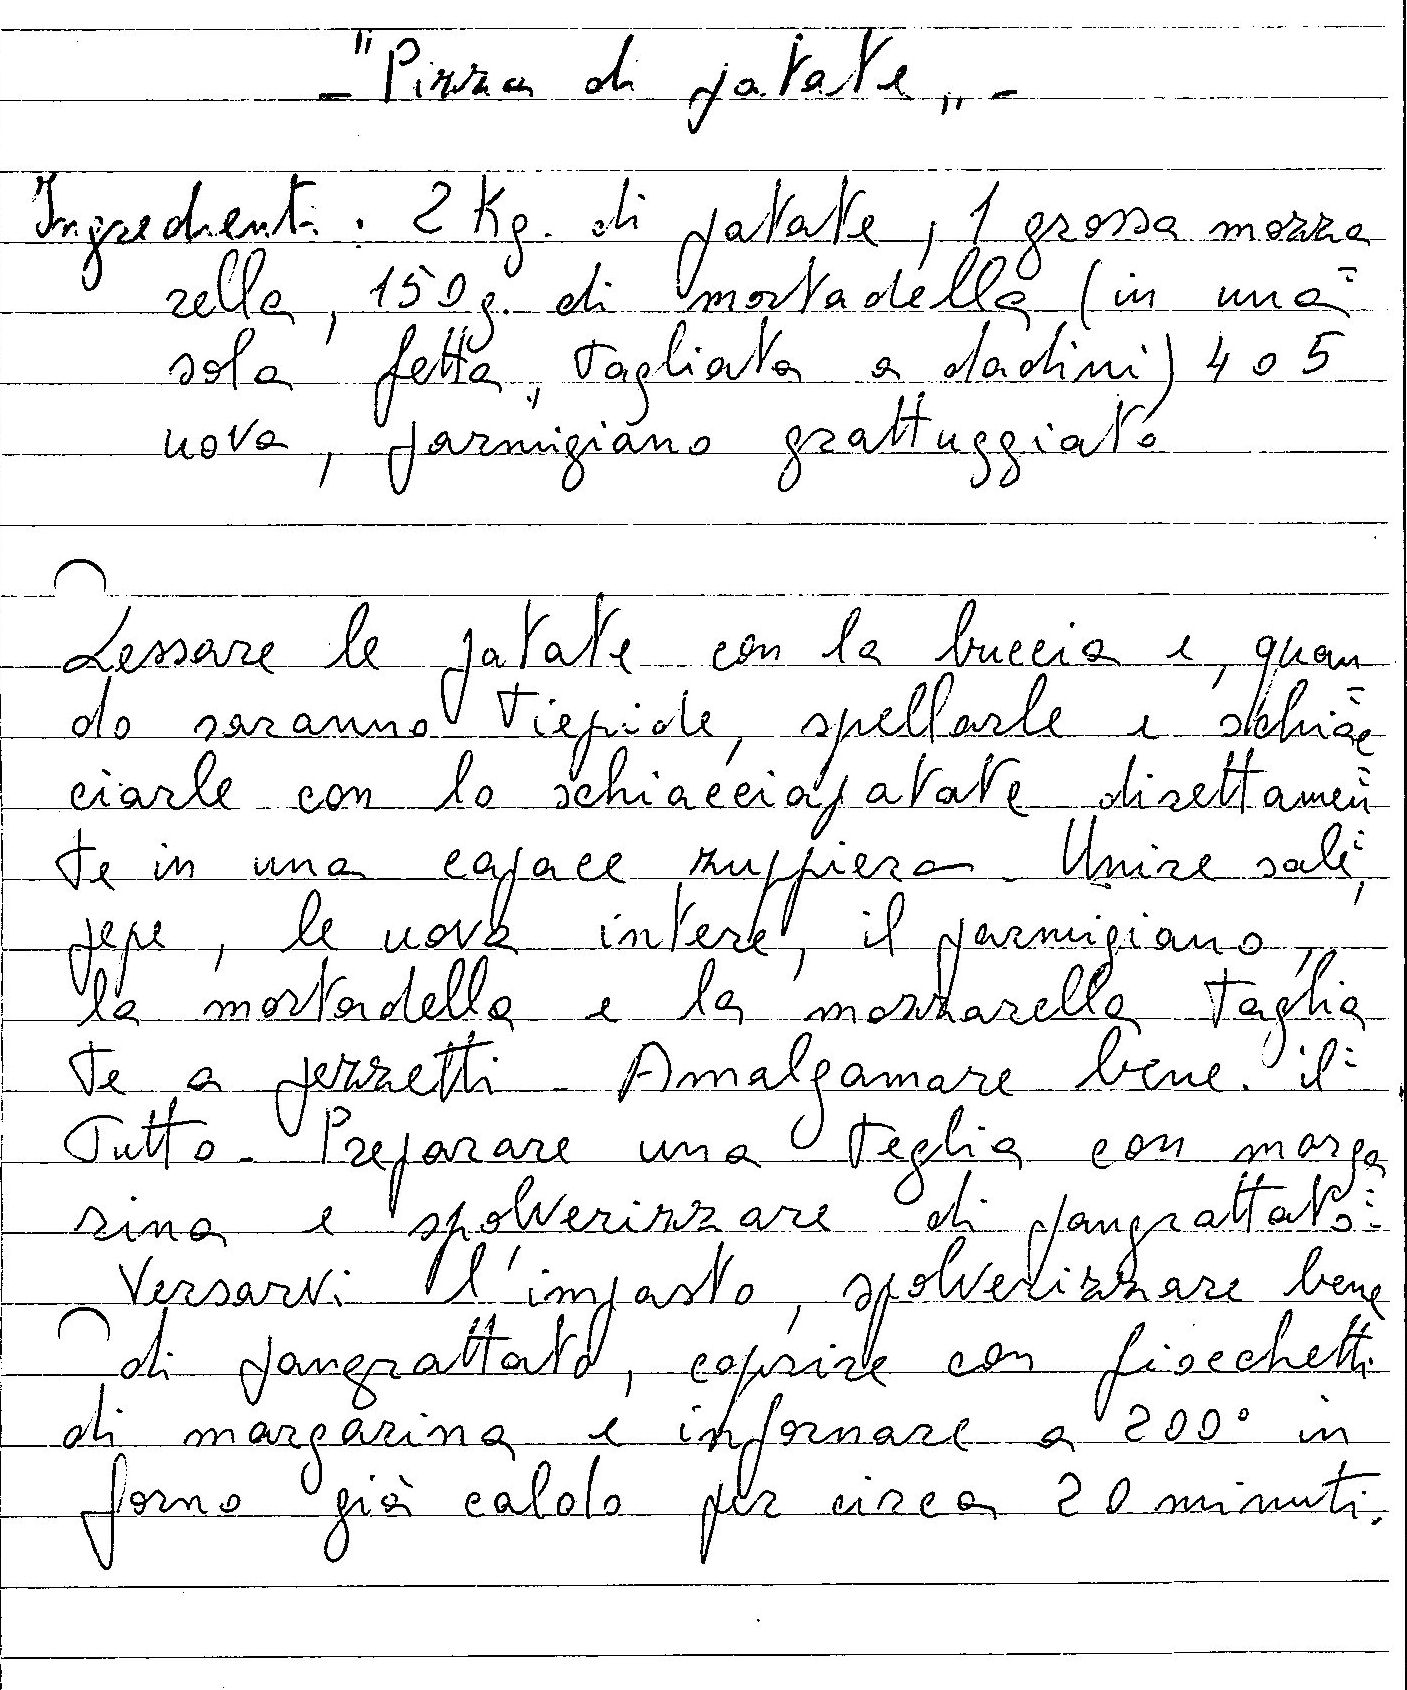 - "Pizza di patate„ -
Ingredienti: 2 Kg. di patate, 1 grossa mozza
rella, 150 g. di mortadella (in una
sola fetta, tagliata a dadini) 4 o 5
uova, parmigiano grattuggiato
Lessare le patate con la buccia e, quan
do saranno tiepide, spellarle e schiac
ciarle con lo schiacciapatate direttamen
te in una capace zuppiera. Unire sale,
pepe, le uova intere, il parmigiano,
la mortadella e la mozzarella taglia
te a pezzetti. Amalgamare bene il
tutto. Preparare una teglia con marga
rina e spolverizzare di pangrattato.
Versarvi l'impasto, spolverizzare bene
di pangrattato, coprire con fiocchetti
di margarina e infornare a 200° in
forno già caldo per circa 20 minuti.